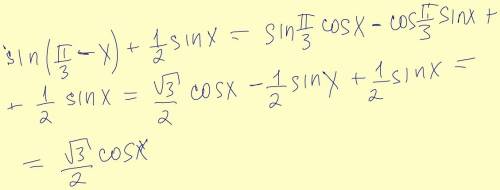 sin(π/3 - x) + 1/2 sinx = sin π/3 cosx - cos π/3 sinx +
+ 1/2 sinx = √3/2 cosx - 1/2 sinx + 1/2 sinx =
= √3/2 cosx